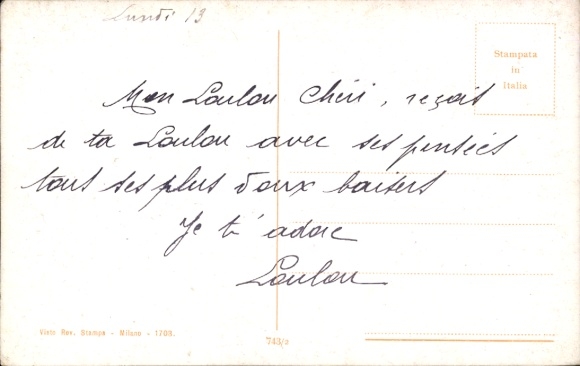 Lundi 13
Stampata
in
Italia
Mon Loulou Chéri, reçoit
de ta Loulou avec ses pensées
tous ses plus doux baisers
Je t'adore
Loulou
Visto Rev. Stampa - Milano - 1703.
743/3